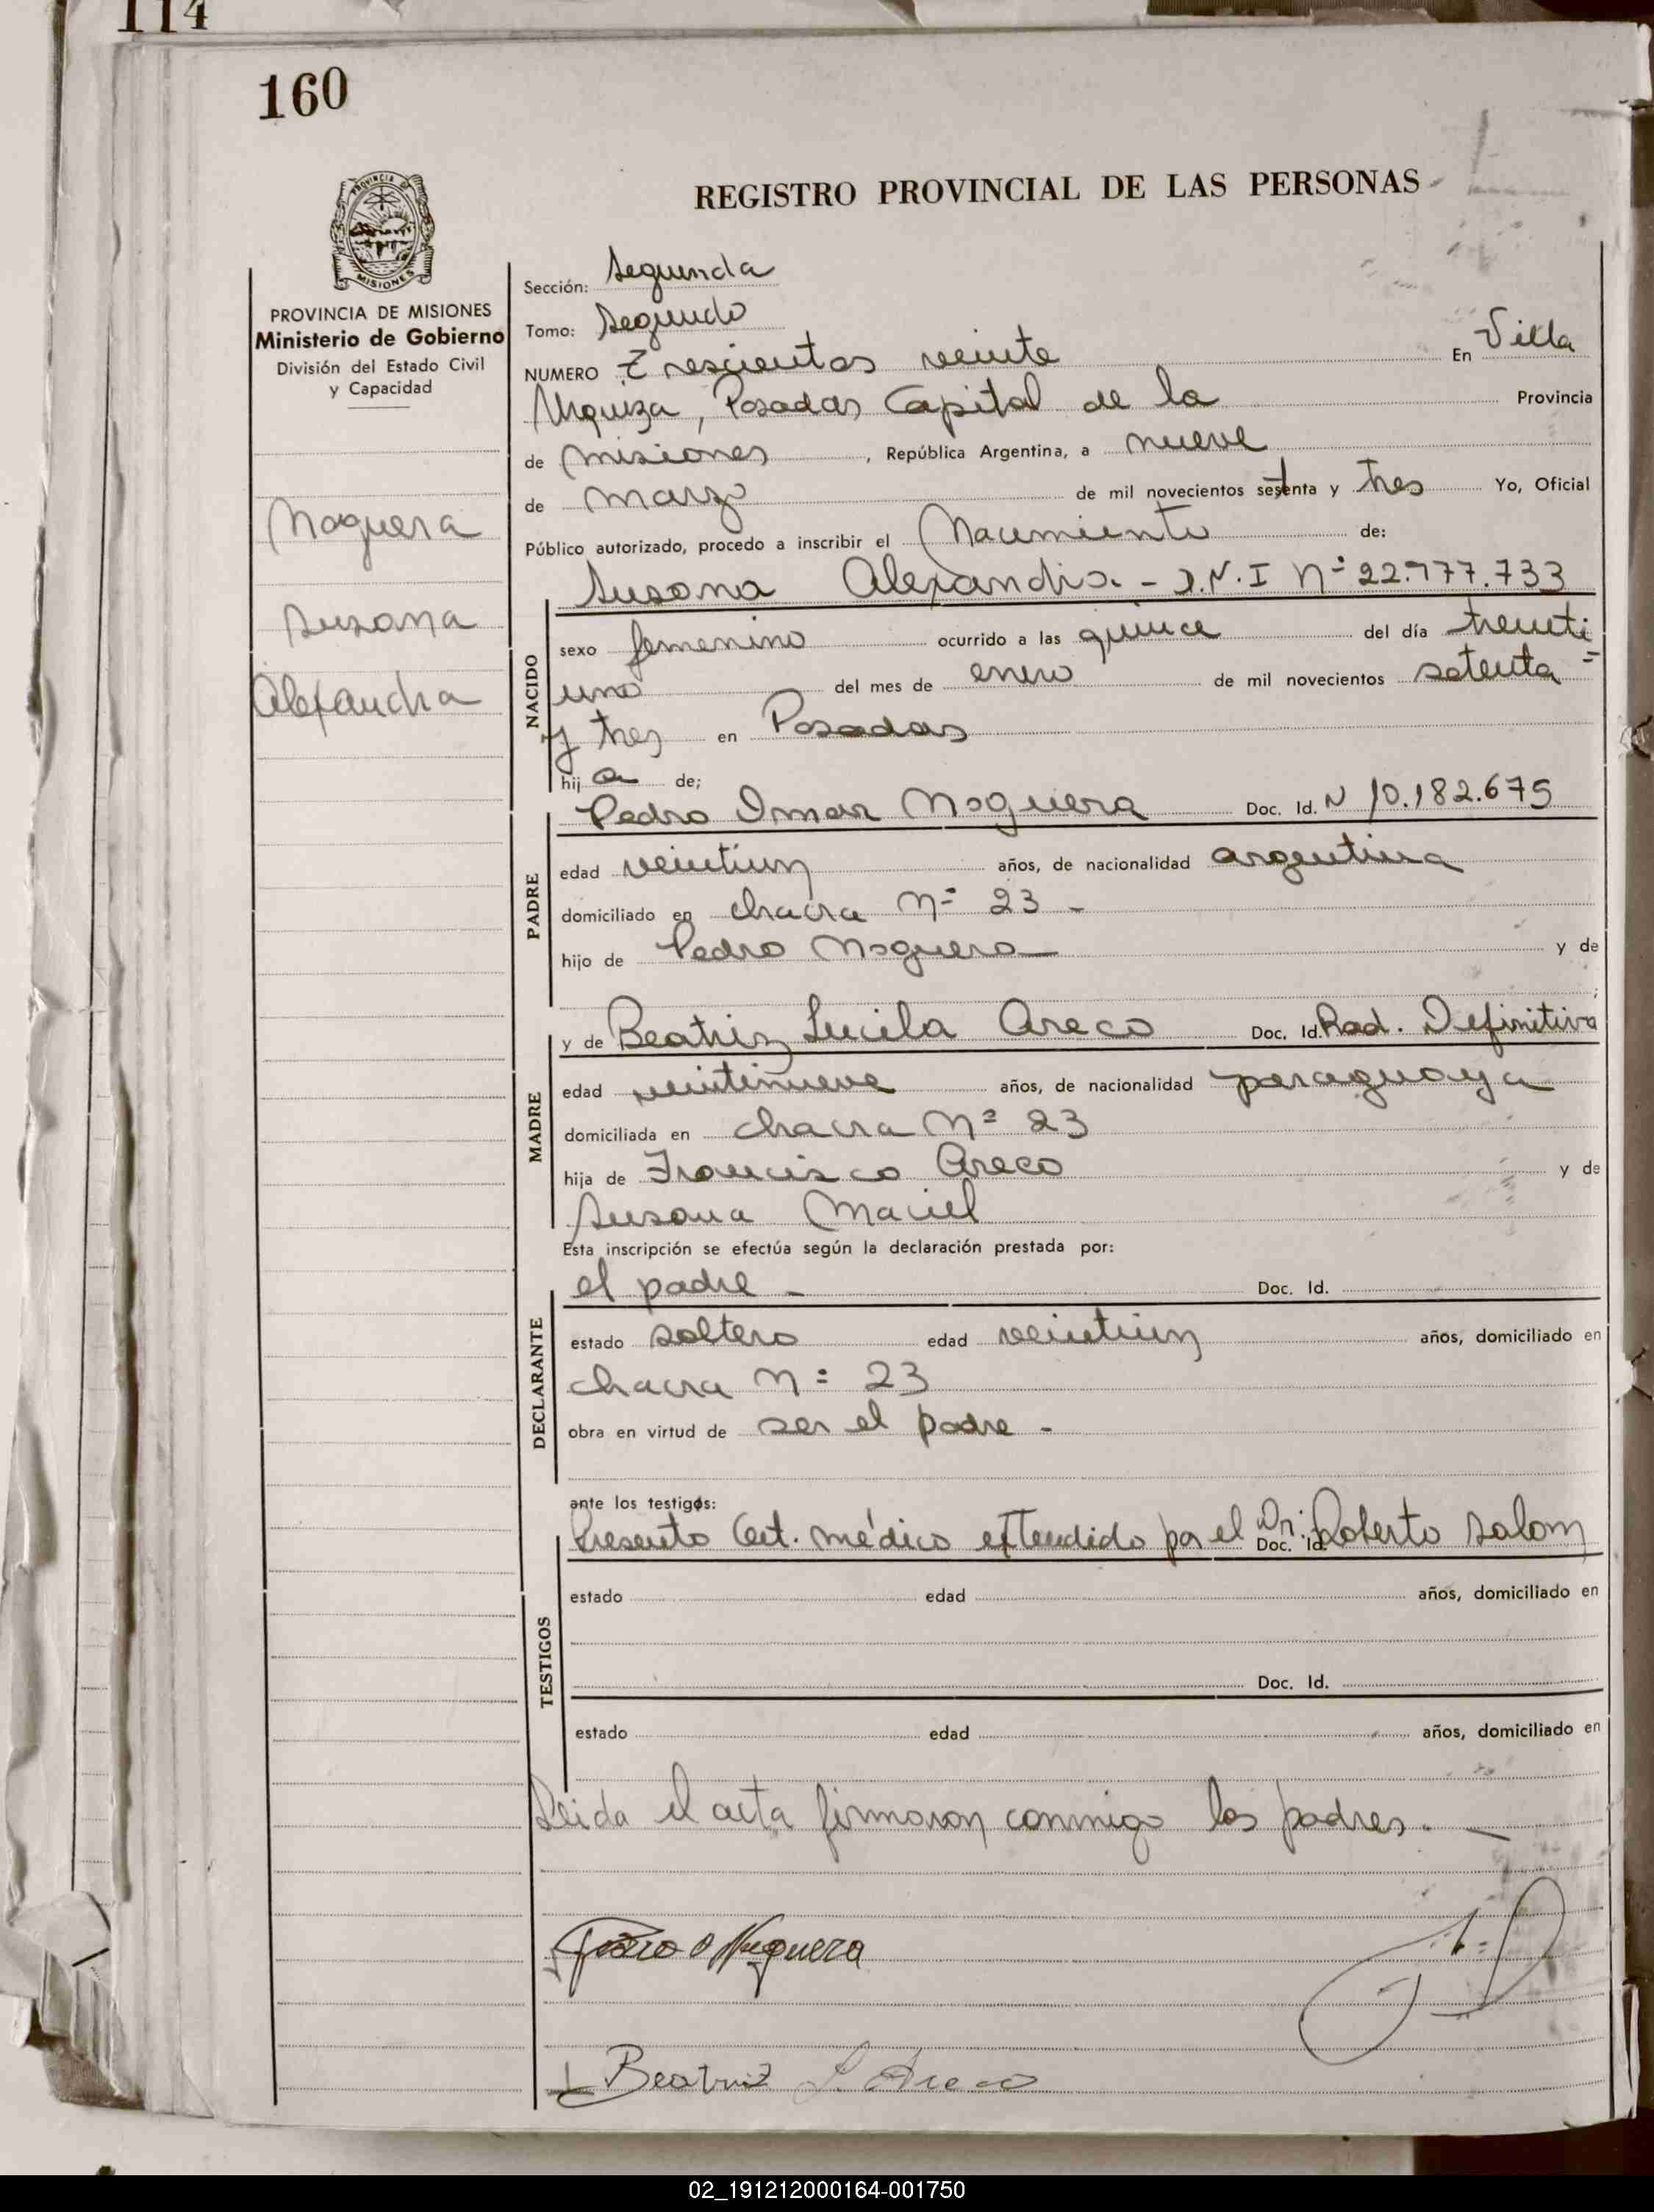 114
160
REGISTRO PROVINCIAL DE LAS PERSONAS
PROVINCIA DE
MISIONES
PROVINCIA DE MISIONES
Ministerio de Gobierno
División del Estado Civil
y Capacidad
Noguera
Susana
Alexandra
Sección: Segunda
Tomo: Segundo
NUMERO Trescientos veinte En Villa
Urquiza, Posadas Capital de la Provincia
de Misiones, República Argentina, a nueve
de Marzo de mil novecientos setenta y tres Yo, Oficial
Público autorizado, procedo a inscribir el Nacimiento de:
Susana Alexandra. - D.N.I Nº 22.977.733
NACIDO
sexo femenino ocurrido a las quince del día treinti
uno del mes de enero de mil novecientos setenta =
y tres en Posadas
hij a de;
PADRE
Pedro Omar Noguera Doc. Id. N 10.182.675
edad veintiun años, de nacionalidad argentina
domiciliado en chacra Nº 23 -
hijo de Pedro Noguera y de
;
MADRE
y de Beatriz Lucila Areco Doc. Id. Rad. Definitiva
edad veintinueve años, de nacionalidad paraguaya
domiciliada en chacra Nº 23
hija de Francisco Areco y de
Susana Maciel
Esta inscripción se efectúa según la declaración prestada por:
DECLARANTE
el padre - Doc. Id.
estado soltero edad veintiun años, domiciliado en
chacra Nº 23
obra en virtud de ser el padre -
ante los testigos:
TESTIGOS
Presento Cert. médico extendido por el Dr: Roberto Salom Doc. Id.
estado edad años, domiciliado en
Doc. Id.
estado edad años, domiciliado en
Leida el acta firmaron conmigo los padres. -
Pedro O Noguera
Beatriz L. Areco
02_191212000164-001750